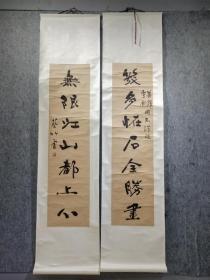 幾多怪石全勝畫
無限江山都上心